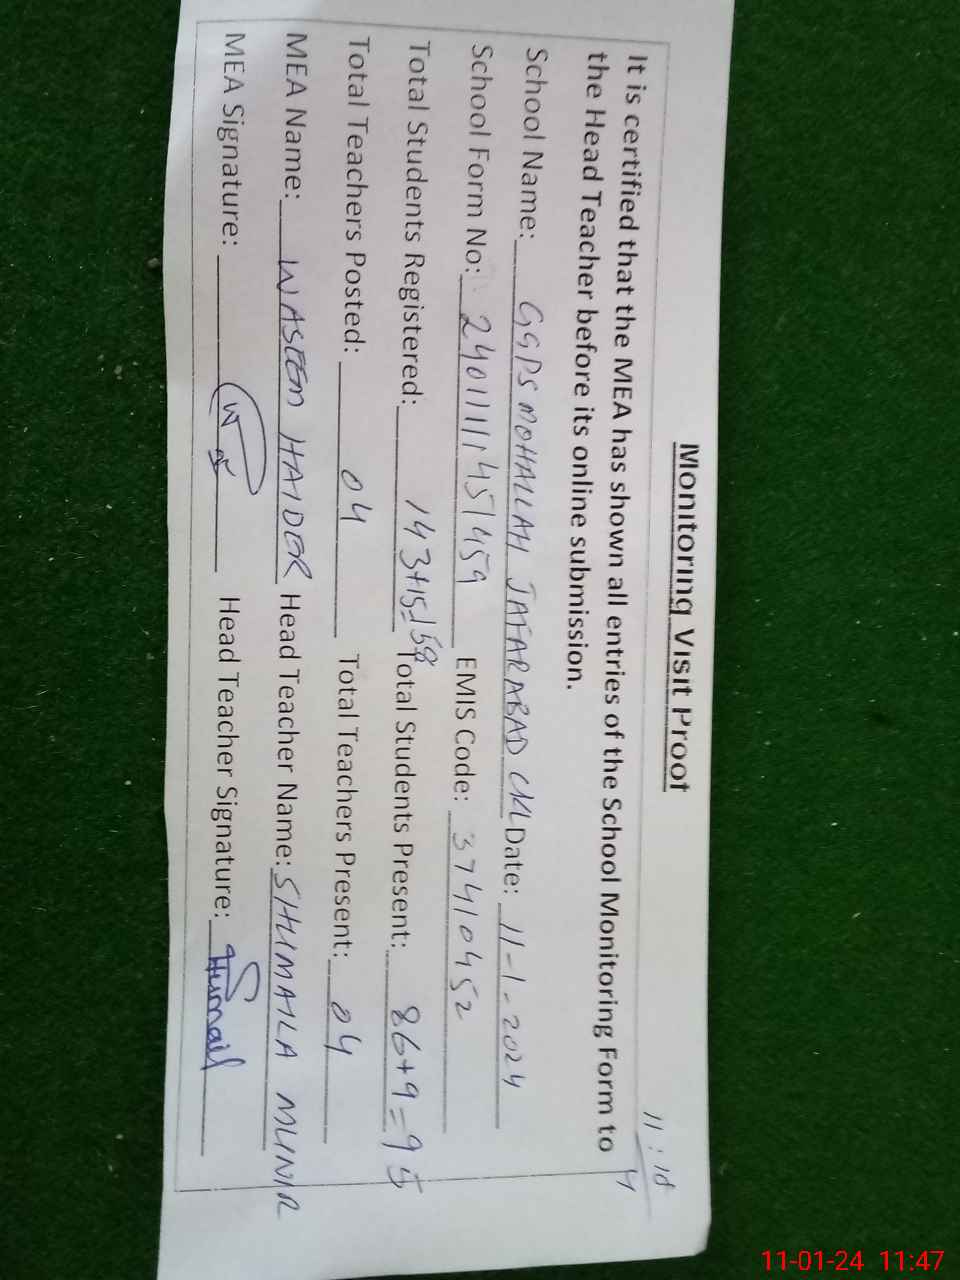 11:10
4
Monitoring Visit Proof
It is certified that the MEA has shown all entries of the School Monitoring Form to
the Head Teacher before its online submission.
School Name: GGPS MOHALLAH JAFARABAD CKL Date: 11-1-2024
School Form No: 2401111451459 EMIS Code: 37410452
Total Students Registered: 143+15=158 Total Students Present: 86+9=95
Total Teachers Posted: 04 Total Teachers Present: 04
MEA Name: WASEEM HAIDER Head Teacher Name: SHUMAILA MUNIR
MEA Signature: Head Teacher Signature: Shumail
11-01-24 11:47